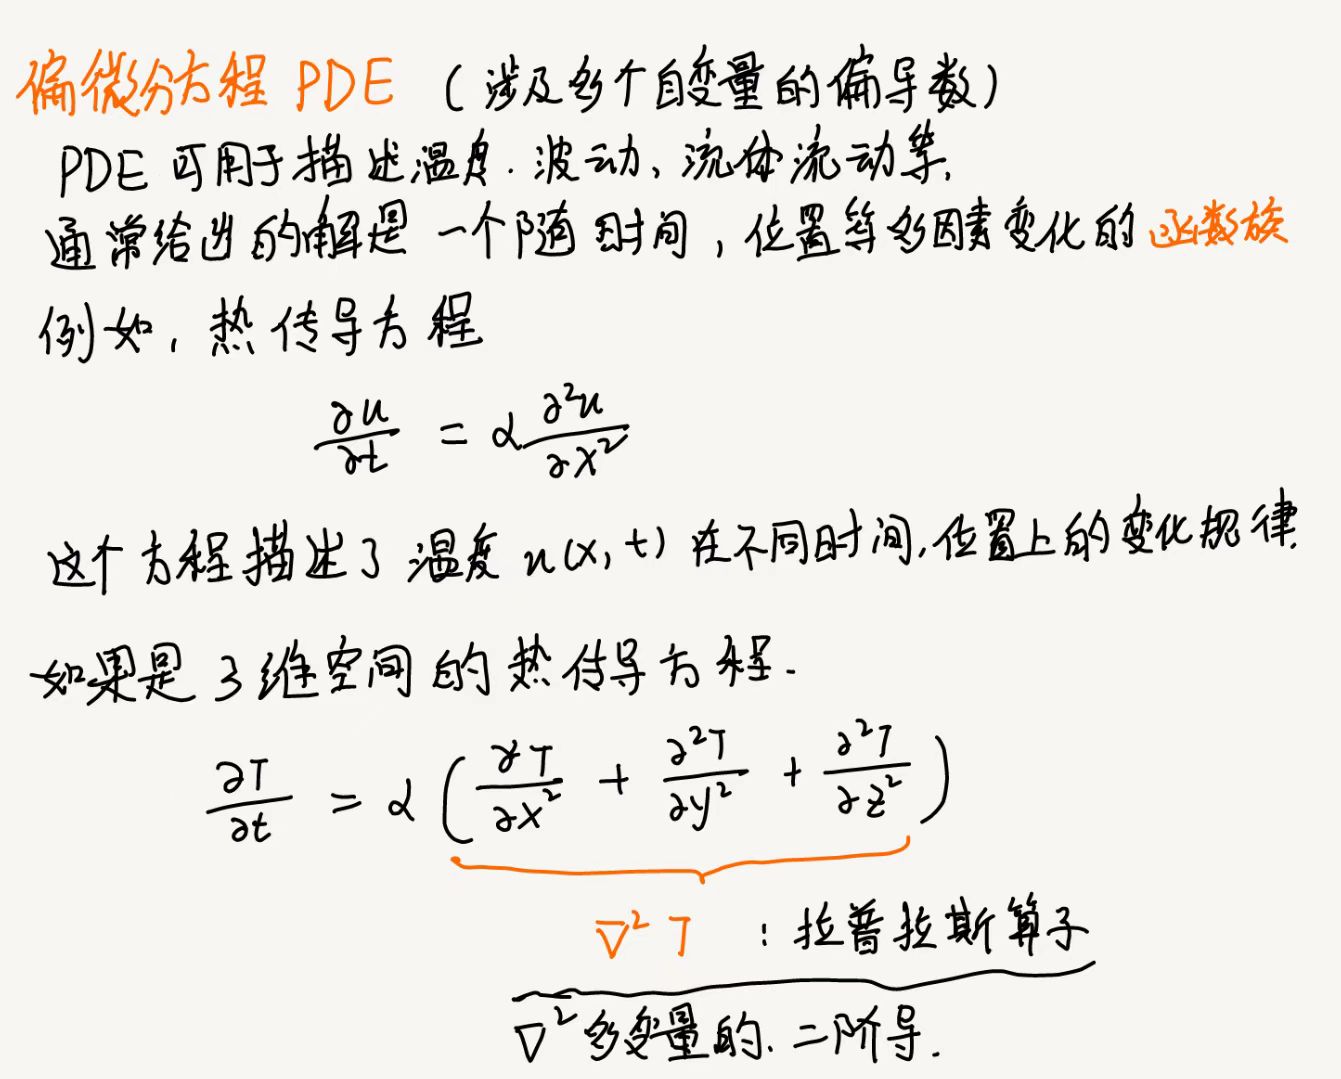 偏微分方程 PDE (涉及多个自变量的偏导数)
PDE 可用于描述温度.波动、流体流动等.
通常给出的解是一个随时间,位置等多因素变化的函数族
例如,热传导方程
∂u/∂t = α ∂²u/∂x²
这个方程描述了温度 u(x,t) 在不同时间,位置上的变化规律.
如果是3维空间的热传导方程.
∂T/∂t = α (∂T/∂x² + ∂²T/∂y² + ∂²T/∂z²)
∇²T :拉普拉斯算子
∇² 多变量的.二阶导.